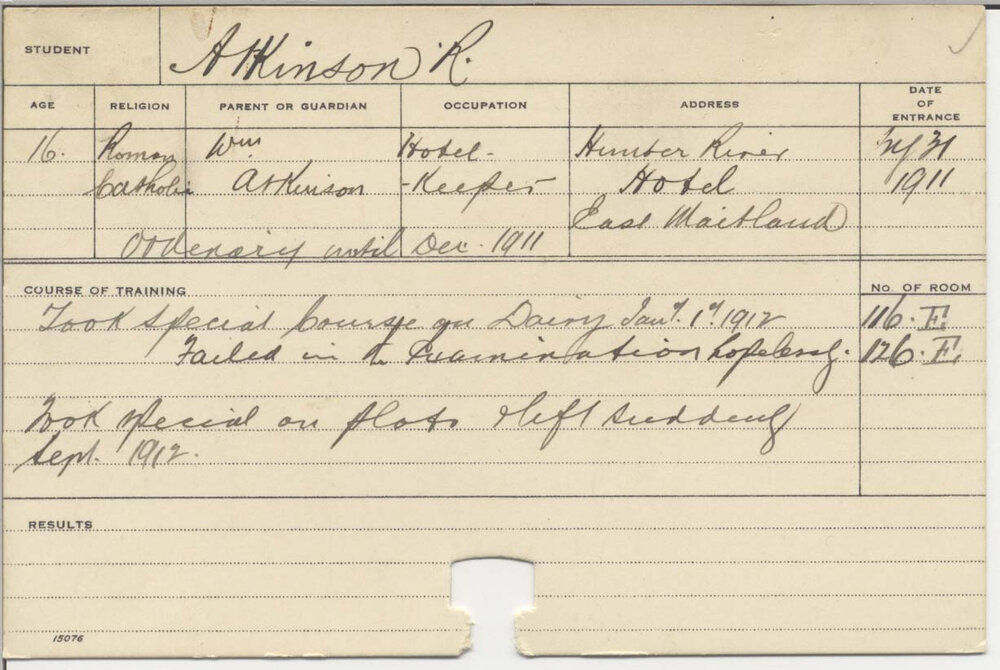 STUDENT Atkinson R.
AGE RELIGION PARENT OR GUARDIAN OCCUPATION ADDRESS DATE OF ENTRANCE
16. Roman Wm Hotel- Hunter River 31
Catholic Atkinson -Keeper Hotel 1911
East Maitland
Ordenary until Dec. 1911
COURSE OF TRAINING No. OF ROOM
Took special Course on Dairy Jany. 1st 1912 116. E.
Failed in the Examination hopelessly. 126. E.
Took special on plots & left suddenly
Sept. 1912.
RESULTS
15076